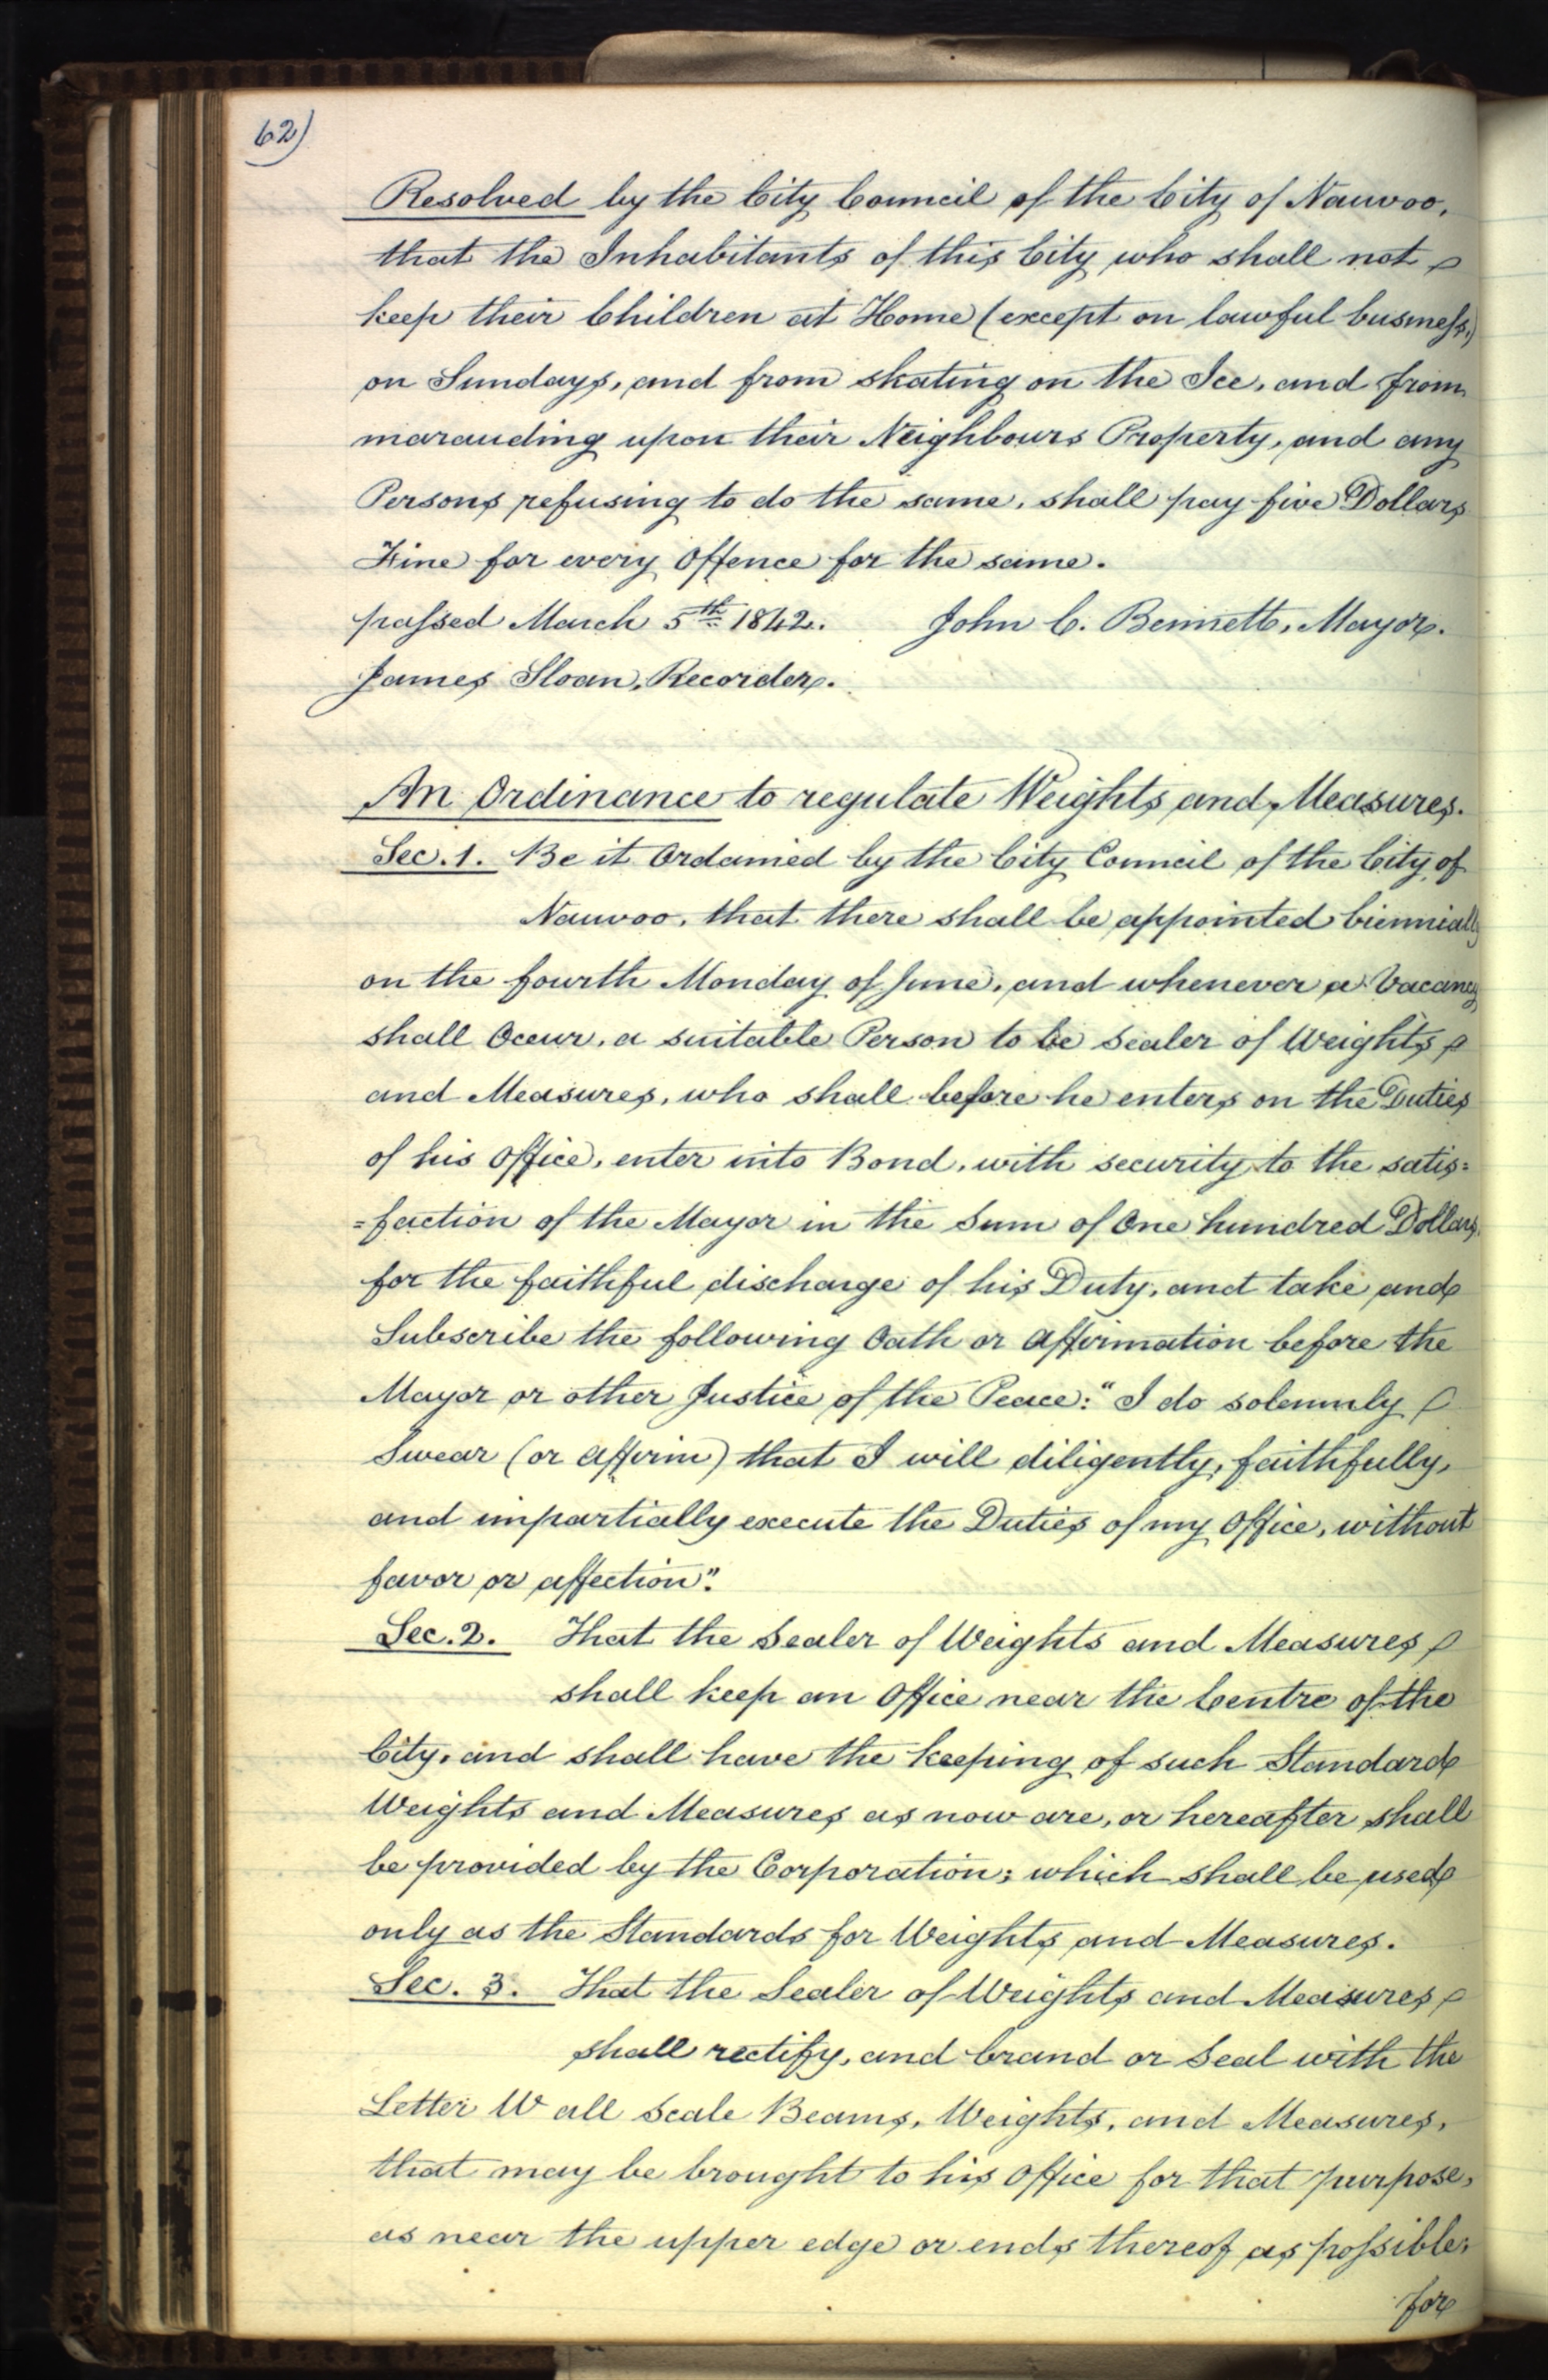 62)
Resolved by the City Council of the City of Nauvoo,
that the Inhabitants of this City who shall not
keep their Children at Home (except on lawful business,)
on Sundays, and from skating on the Ice, and from
marauding upon their Neighbours Property, and any
Persons refusing to do the same, shall pay five Dollars
Fine for every Offence for the same.
passed March 5th 1842. John C. Bennett, Mayor.
James Sloan, Recorder.
An Ordinance to regulate Weights and Measures.
Sec. 1. Be it Ordained by the City Council of the City of
Nauvoo, that there shall be appointed biennially
on the fourth Monday of June, and whenever a Vacancy
shall Occur, a suitable Person to be Sealer of Weights
and Measures, who shall before he enters on the Duties
of his Office, enter into Bond, with security to the satis=
=faction of the Mayor in the Sum of One hundred Dollars,
for the faithful discharge of his Duty, and take and
Subscribe the following Oath or Affirmation before the
Mayor or other Justice of the Peace: "I do solemnly
Swear (or affirm) that I will diligently, faithfully,
and impartially execute the Duties of my Office, without
favor or affection".
Sec. 2. That the Sealer of Weights and Measures
shall keep an Office near the Centre of the
City, and shall have the keeping of such Standard
Weights and Measures as now are, or hereafter shall
be provided by the Corporation; which shall be used
only as the Standards for Weights and Measures.
Sec. 3. That the Sealer of Weights and Measures
shall rectify, and brand or Seal with the
Letter W all Scale Beams, Weights, and Measures,
that may be brought to his Office for that purpose,
as near the upper edge or ends thereof as possible,
for